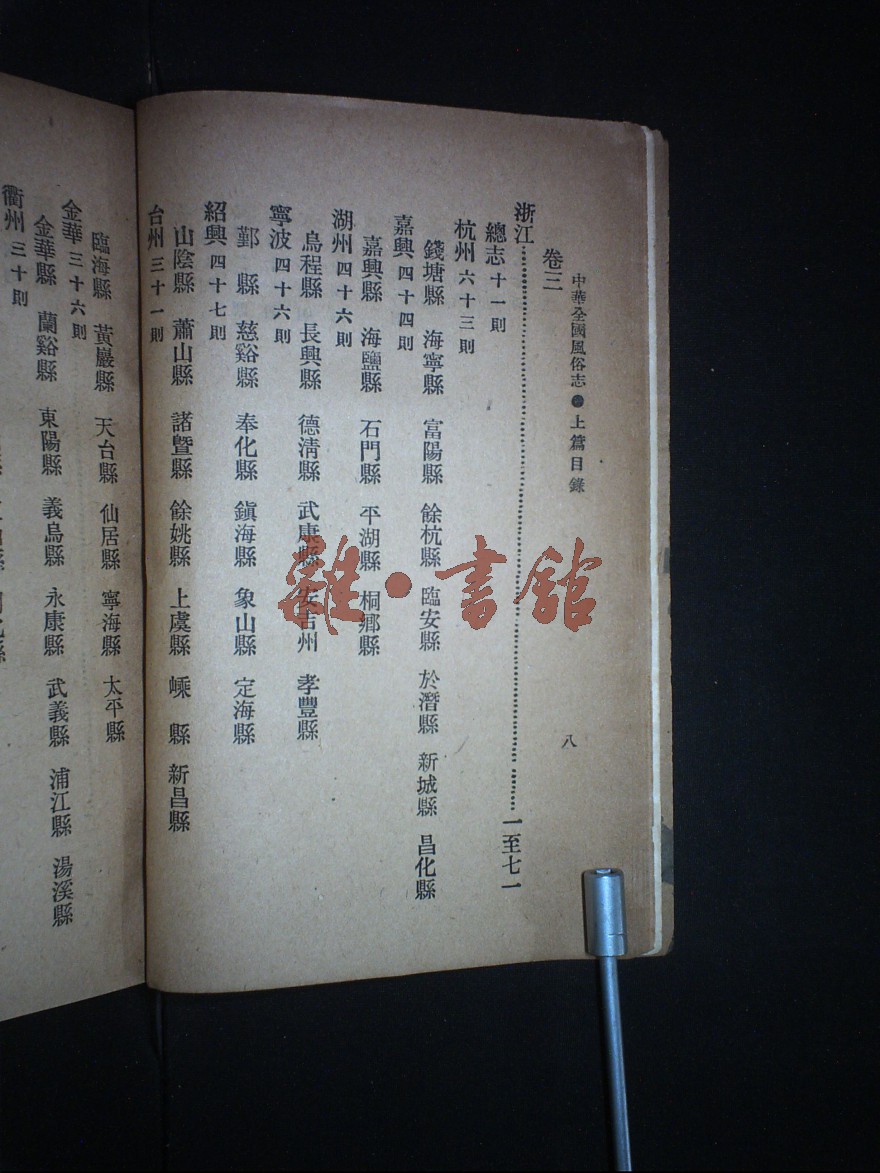 中華全國風俗志 ● 上篇目錄
八
卷三
浙江……一至七一
總志 十一則
杭州 六十三則
錢塘縣 海寧縣 富陽縣 餘杭縣 臨安縣 於潛縣 新城縣 昌化縣
嘉興 四十四則
嘉興縣 海鹽縣 石門縣 平湖縣 桐鄉縣
湖州 四十六則
烏程縣 長興縣 德清縣 武康縣 安吉州 孝豐縣
寧波 四十六則
鄞縣 慈谿縣 奉化縣 鎭海縣 象山縣 定海縣
紹興 四十七則
山陰縣 蕭山縣 諸暨縣 餘姚縣 上虞縣 嵊縣 新昌縣
台州 三十一則
臨海縣 黃巖縣 天台縣 仙居縣 寧海縣 太平縣
金華 三十六則
金華縣 蘭谿縣 東陽縣 義烏縣 永康縣 武義縣 浦江縣 湯溪縣
衢州 三十則
雜·書館